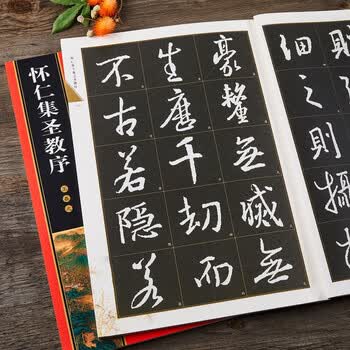 細之則攝
豪釐無滅無
生歷千劫而
不古若隱若
怀仁集圣教序